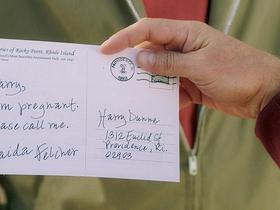 nes of Rocky Point, Rhode Island
arry,
m pregnant.
ase call me.
aida Felcher
Harry Dunne
1312 Euclid St.
Providence, R.I.
02903